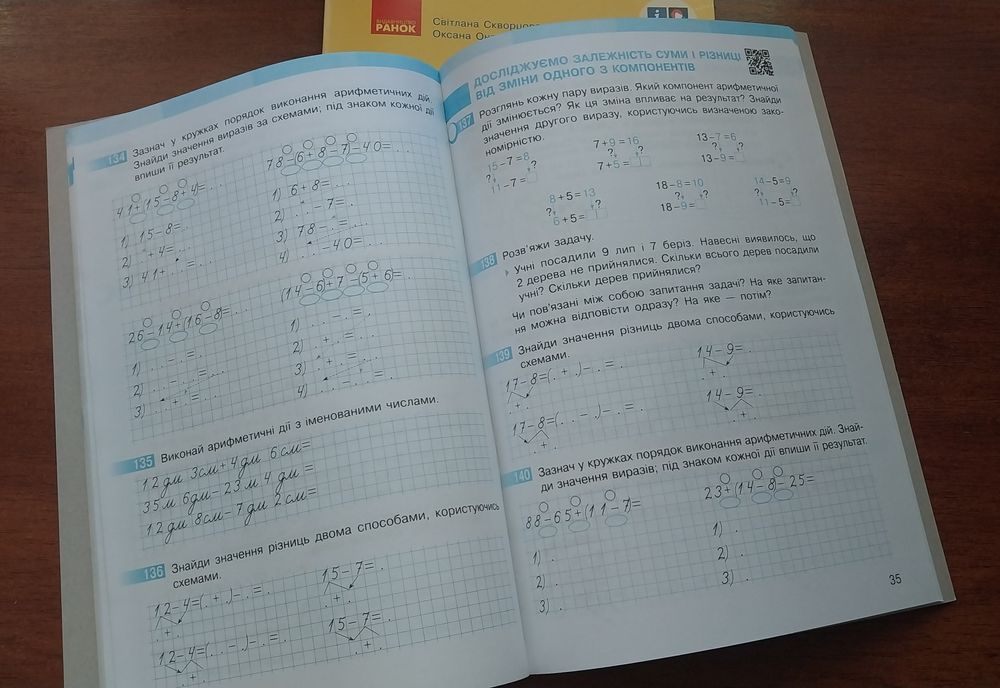 ВИДАВНИЦТВО
РАНОК
Світлана Скворцова
Оксана
134 Зазнач у кружках порядок виконання арифметичних дій.
Знайди значення виразів за схемами; під знаком кожної дії
впиши її результат.
41+(15−8+4)=...
1) 15−8=..
2) .+4=..
3) 41+..=..
78−6+8−7−40=...
1) 6+8=..
2) ..−7=.
3) 78−.=..
4) ..−40=..
26−14+(16−8=...
1) ..−..=
2) ..−..=
3) ..+.=..
(14−6+7−(5+6=.
1) ..−.=
2) .+..=
3) .+.=..
4) ..−..=
135 Виконай арифметичні дії з іменованими числами.
12 дм 3см+4дм 6см=
35м 6дм−23м 4дм=
12дм 8см−7дм 2см=
136 Знайди значення різниць двома способами, користуючись
схемами.
12−4=(.+.)−.=.
.+.
15−7=.
.+.
12−4=(..−.)−.=.
.+.
15−7=
.+.
ДОСЛІДЖУЄМО ЗАЛЕЖНІСТЬ СУМИ І РІЗНИЦІ
ВІД ЗМІНИ ОДНОГО З КОМПОНЕНТІВ
137 Розглянь кожну пару виразів. Який компонент арифметичної
дії змінюється? Як ця зміна впливає на результат? Знайди
значення другого виразу, користуючись визначеною зако-
номірністю.
15−7=8
? ?
11−7=
7+9=16
? ?
7+5=
13−7=6
? ?
13−9=
8+5=13
? ?
6+5=
18−8=10
? ?
18−9=
14−5=9
? ?
11−5=
138 Розв'яжи задачу.
Учні посадили 9 лип і 7 беріз. Навесні виявилось, що
2 дерева не прийнялися. Скільки всього дерев посадили
учні? Скільки дерев прийнялися?
Чи пов'язані між собою запитання задачі? На яке запитан-
ня можна відповісти одразу? На яке — потім?
139 Знайди значення різниць двома способами, користуючись
схемами.
17−8=(.+.)−.=.
.+.
14−9=.
.+.
17−8=(..−.)−.=.
.+.
14−9=.
.+.
140 Зазнач у кружках порядок виконання арифметичних дій. Знай-
ди значення виразів; під знаком кожної дії впиши її результат.
88−65+(11−7)=
1) .
2) .
3) .
23+(14−8−25=
1) .
2) .
3) .
35